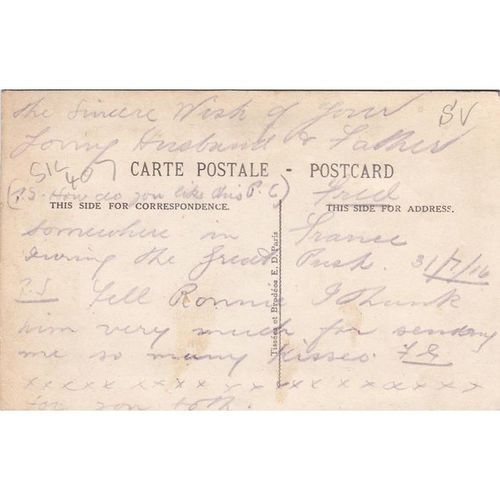 the Sincere Wish of your
Loving Husband & Father
SV
SIL
40
CARTE POSTALE - POSTCARD
(P.S. How do you like this P.C)
Fred
THIS SIDE FOR CORRESPONDENCE.
THIS SIDE FOR ADDRESS.
Somewhere in France
during the Great Push. 31/7/16
P.S Tell Ronnie I thank
him very much for sending
me so many kisses.
x x x x x x x x x x x x x x x x x x
for you both.
Tissées et Brodées E. D. Paris